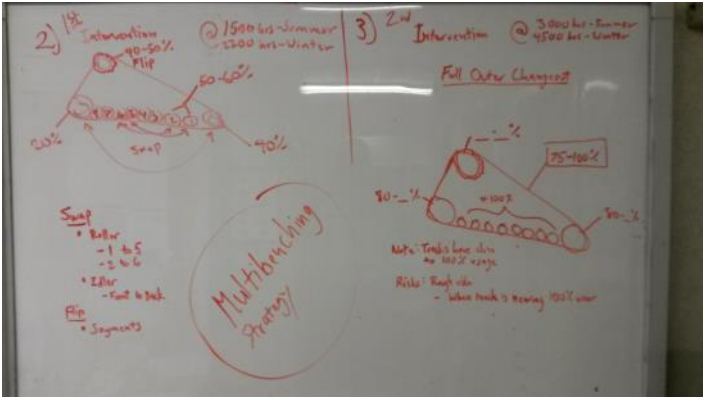 2) 1st Intervention @ 1500 hrs-Summer
2200 hrs-Winter
40-50%
Flip
50-60%
20%
40%
Swap
Swap
• Roller
- 1 to 5
- 2 to 6
• Idler
- Front to Back
Flip
• Segments
Multibenching
Strategy
3) 2nd Intervention @ 3000 hrs-Summer
4500 hrs-Winter
Full Outer Changeout
_-_%
75-100%
80-_%
100%
80-_%
Note: Tracks have
100% usage
Risks: Rough ride
- When track is nearing 100% wear